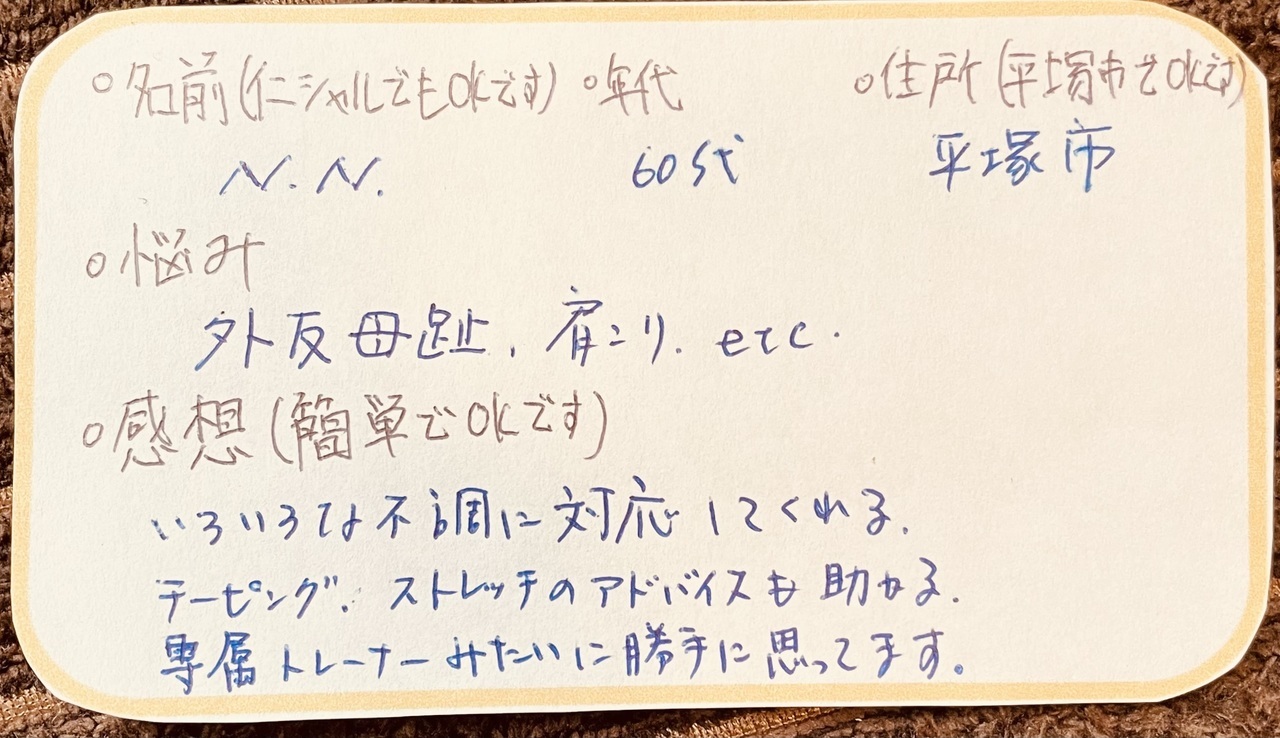 ○名前(イニシャルでもOKです) ○年代 ○住所(平塚市でOKです)
N.N. 60代 平塚市
○悩み
外反母趾、肩こり、etc.
○感想(簡単でOKです)
いろいろな不調に対応してくれる。
テーピング、ストレッチのアドバイスも助かる。
専属トレーナーみたいに勝手に思ってます。